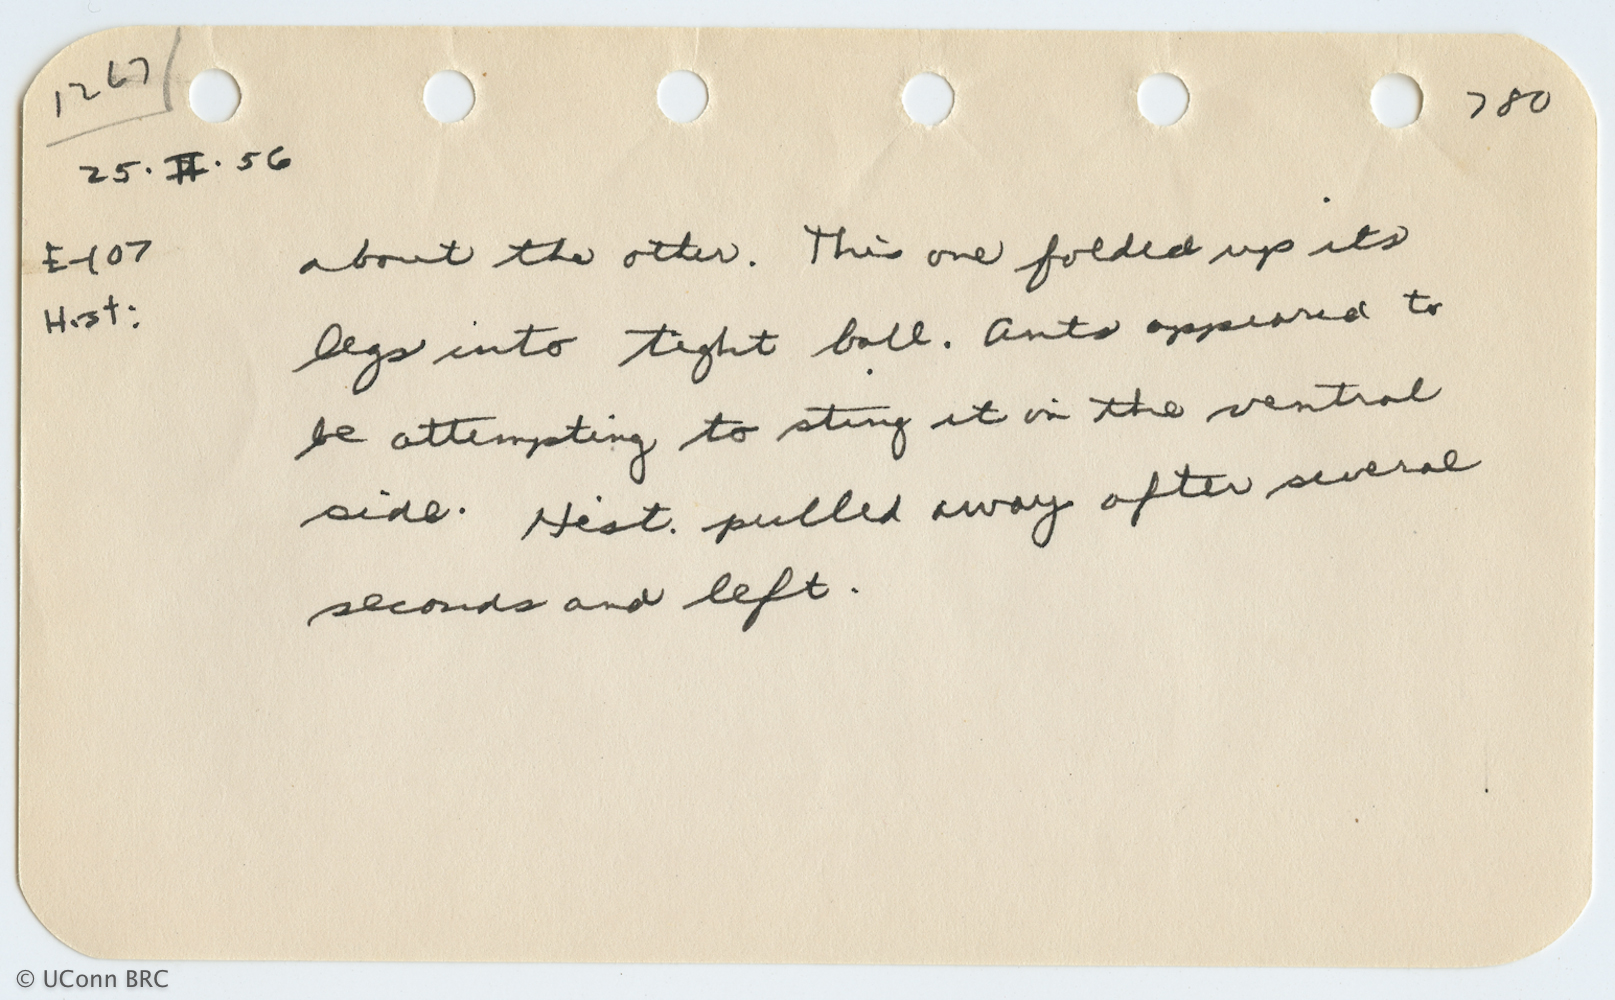 1267
780
25.II.56
E-107
Hist:
about the other. This one folded up its
legs into tight ball. Ants appeared to
be attempting to sting it in the ventral
side. Hist. pulled away after several
seconds and left.
© UConn BRC